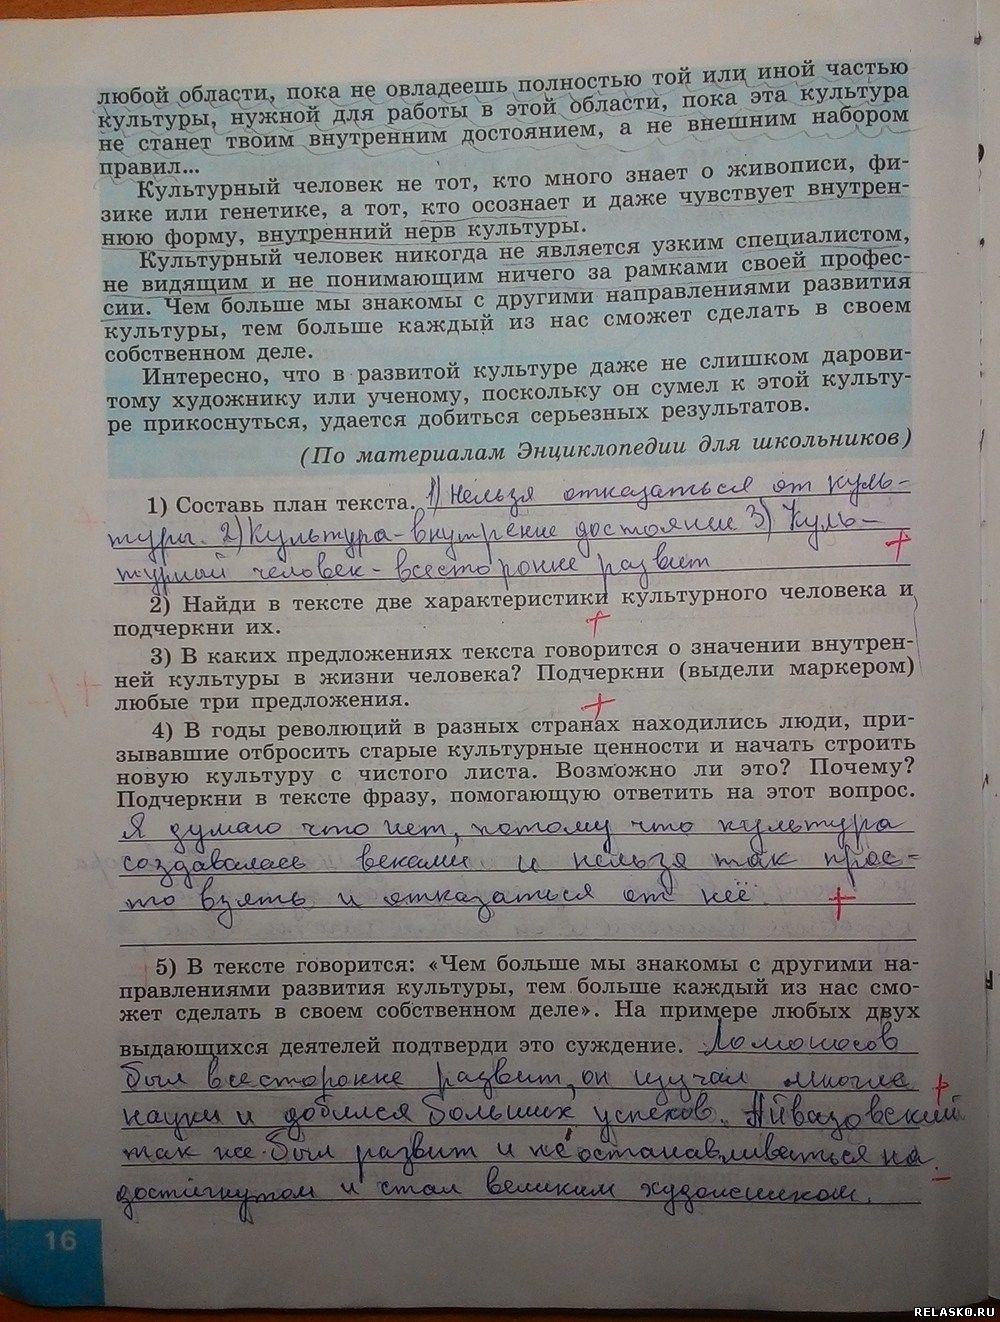 любой области, пока не овладеешь полностью той или иной частью
культуры, нужной для работы в этой области, пока эта культура
не станет твоим внутренним достоянием, а не внешним набором
правил...
Культурный человек не тот, кто много знает о живописи, фи-
зике или генетике, а тот, кто осознает и даже чувствует внутрен-
нюю форму, внутренний нерв культуры.
Культурный человек никогда не является узким специалистом,
не видящим и не понимающим ничего за рамками своей профес-
сии. Чем больше мы знакомы с другими направлениями развития
культуры, тем больше каждый из нас сможет сделать в своем
собственном деле.
Интересно, что в развитой культуре даже не слишком дарови-
тому художнику или ученому, поскольку он сумел к этой культу-
ре прикоснуться, удается добиться серьезных результатов.
(По материалам Энциклопедии для школьников)
1) Составь план текста. 1) Нельзя отказаться от куль-
туры. 2) Культура - внутрение достояние 3) Куль-
турный человек - всесторонне развит
2) Найди в тексте две характеристики культурного человека и
подчеркни их.
3) В каких предложениях текста говорится о значении внутрен-
ней культуры в жизни человека? Подчеркни (выдели маркером)
любые три предложения.
4) В годы революций в разных странах находились люди, при-
зывавшие отбросить старые культурные ценности и начать строить
новую культуру с чистого листа. Возможно ли это? Почему?
Подчеркни в тексте фразу, помогающую ответить на этот вопрос.
Я думаю что нет, потому что культура
создавалась веками и нельзя так прос-
то взять и отказаться от неё.
5) В тексте говорится: «Чем больше мы знакомы с другими на-
правлениями развития культуры, тем больше каждый из нас смо-
жет сделать в своем собственном деле». На примере любых двух
выдающихся деятелей подтверди это суждение. Ломоносов
был всесторонне развит, он изучал многие
науки и добился больших успехов. Айвазовский
так же был развит и не останавливаться на
достигнутом и стал великим художником.
16
RELASKO.RU